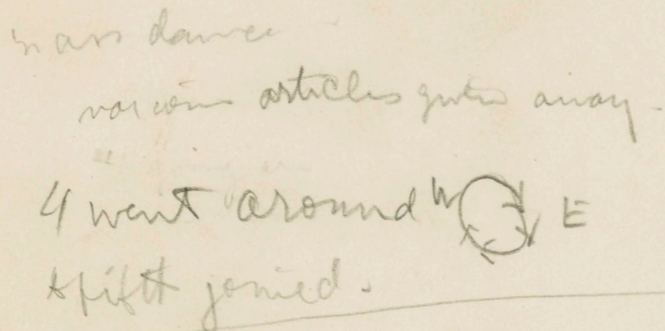 mass dance
various articles given away -
4 went around W E
& fifth joined.